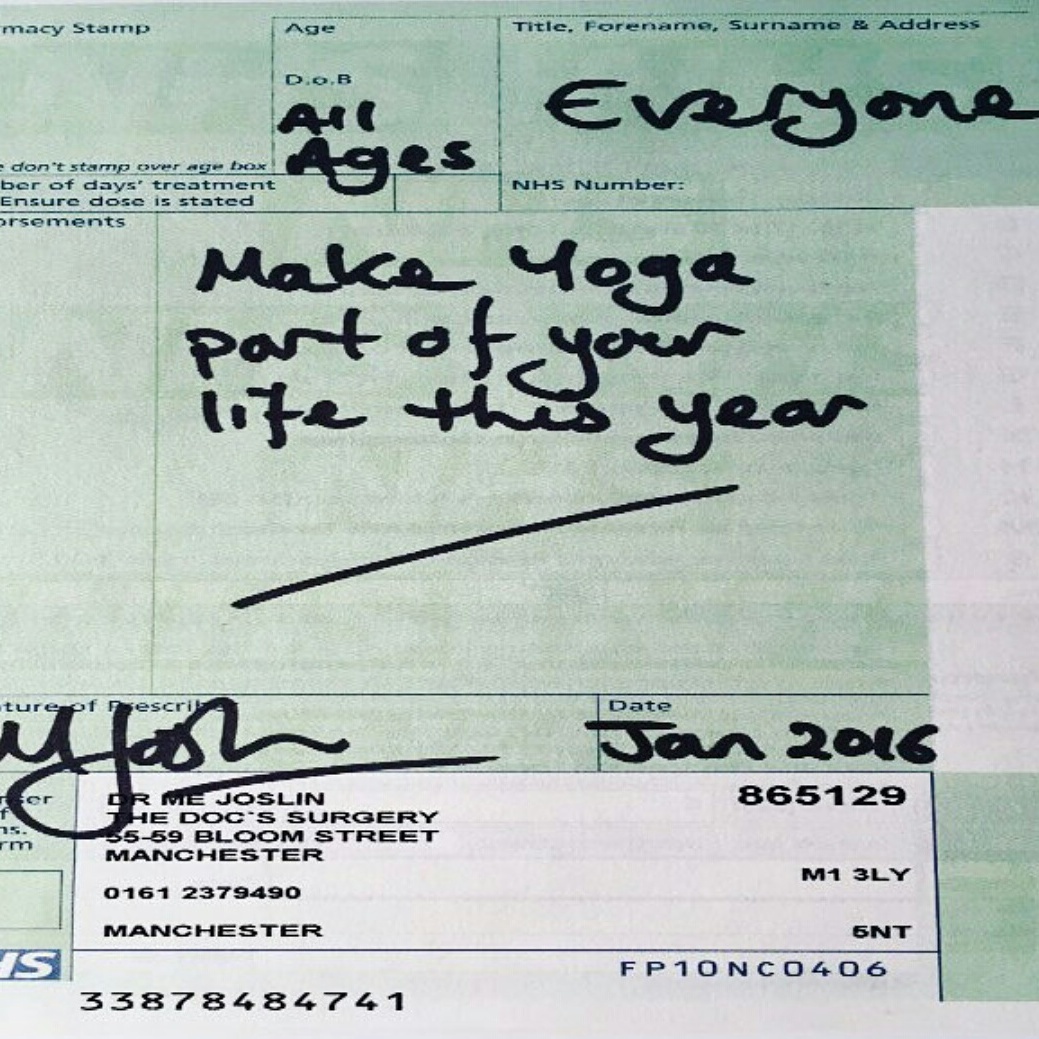 macy Stamp
Age
Title, Forename, Surname & Address
D.o.B
All
Ages
Everyone
e don't stamp over age box
ber of days' treatment
Ensure dose is stated
NHS Number:
orsements
Make Yoga
part of your
life this year
ature of Prescriber
Date
Jan 2016
DR ME JOSLIN
865129
THE DOC`S SURGERY
55-59 BLOOM STREET
MANCHESTER
M1 3LY
0161 2379490
MANCHESTER
5NT
HS
FP10NC0406
33878484741